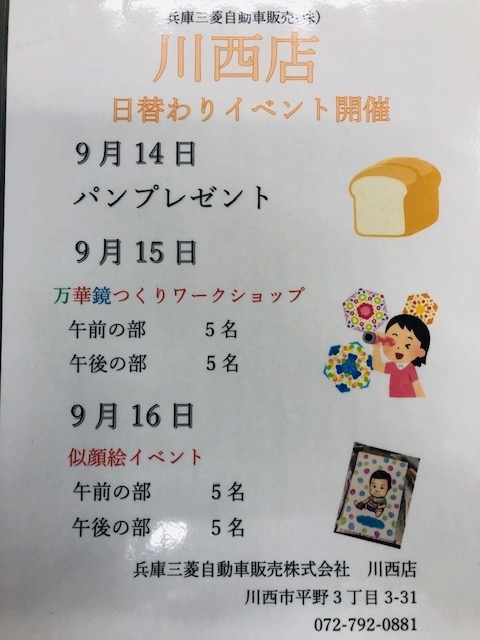 兵庫三菱自動車販売(株)
川西店
日替わりイベント開催
9月14日
パンプレゼント
9月15日
万華鏡つくりワークショップ
午前の部 5名
午後の部 5名
9月16日
似顔絵イベント
午前の部 5名
午後の部 5名
兵庫三菱自動車販売株式会社 川西店
川西市平野3丁目3-31
072-792-0881